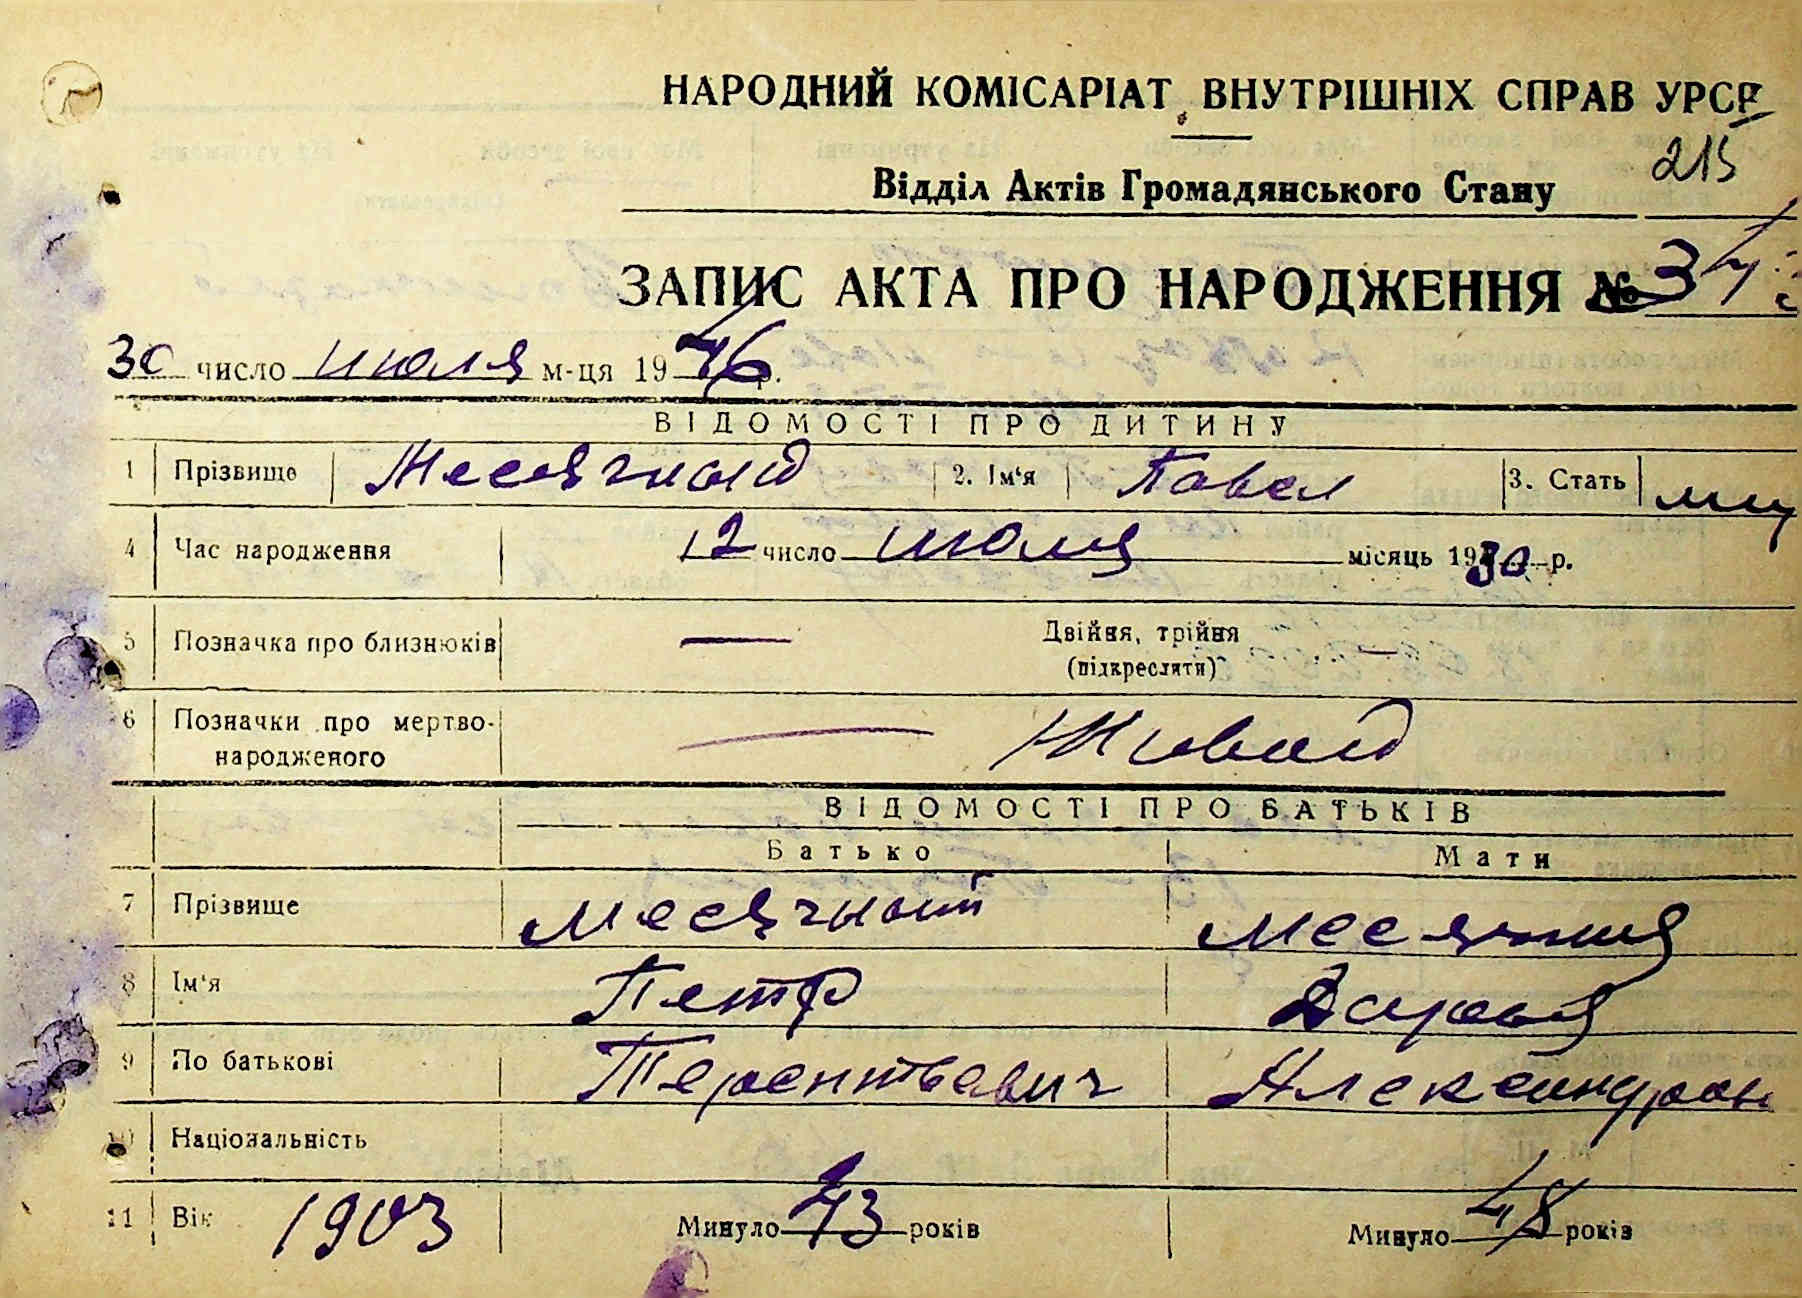 НАРОДНИЙ КОМІСАРІАТ ВНУТРІШНІХ СПРАВ УРСР
215
Відділ Актів Громадянського Стану
ЗАПИС АКТА ПРО НАРОДЖЕННЯ № 34
30 число июля м-ця 1946 р.
ВІДОМОСТІ ПРО ДИТИНУ
1 Прізвище Месячный 2. Ім'я Павел 3. Стать муж
4 Час народження 12 число июля місяць 1930 р.
5 Позначка про близнюків — Двійня, трійня —
(підкреслити)
6 Позначки про мертво-
народженого — Живой
ВІДОМОСТІ ПРО БАТЬКІВ
Батько Мати
7 Прізвище Месячный Месячная
8 Ім'я Петр Дарья
9 По батькові Терентьевич Александров
10 Національність
11 Вік 1903 Минуло 43 років Минуло 48 років